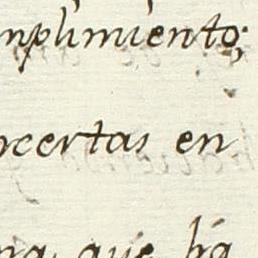 mplimiento;
certas en
na que ha